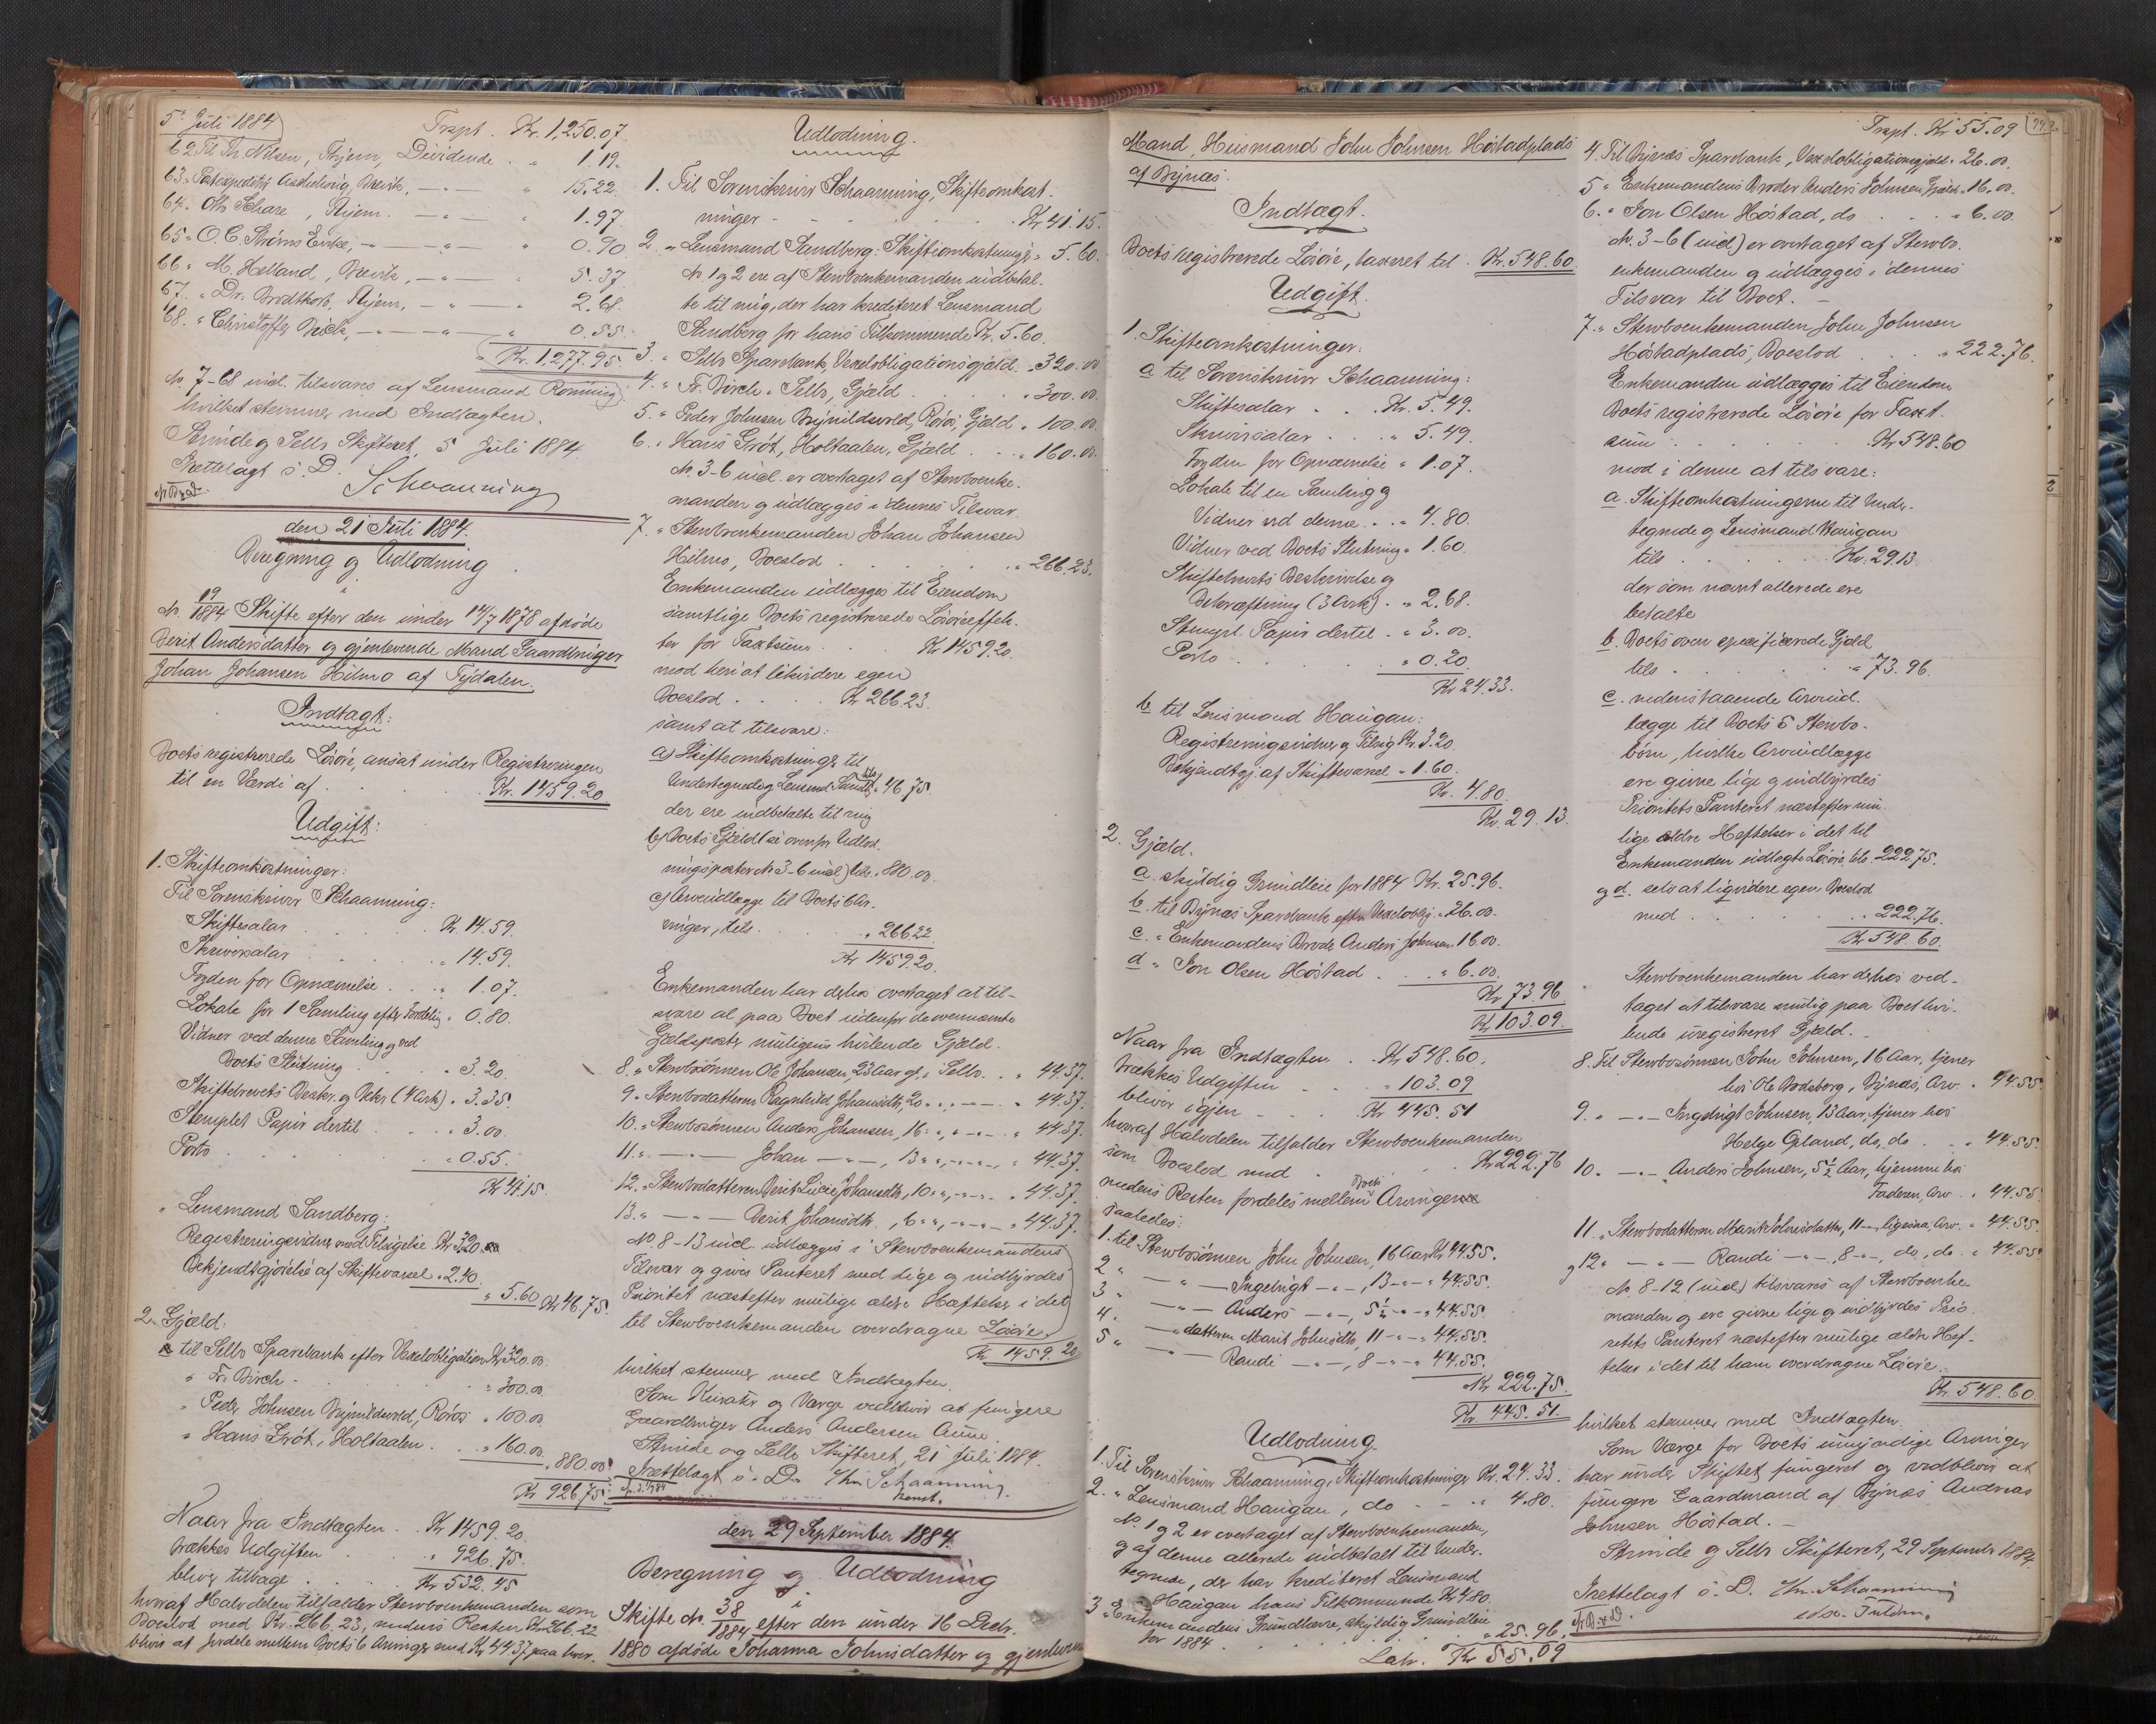 5' Juli 1884
Trspt. Kr. 1,250.07.
62 Til Th Nilsen, Thjem, Dividende . " 1.19.
63 " Postexpeditør , Brevik, — " — " 15.22
64. " Oth Schare, Thjem. — " — " 1.97.
65 " O. C. Strøms Enke, — " — " 0.90
66 " M. Helland, Brevik, — " — " 5.37.
67. " Dr. Brodtkorb, Thjem, — " — " 2.68.
68. " Christoffer Brick, — " — " 0.55.
Kr. 1,277.95.
No. 7-68 incl. tilsvares af Lensmand Rønning
hvilket stemmer med Indtægten.
Strinde og Selbo Skifteret, 5 Juli 1884
Frettelagt s. D. Schaanning
den 21 Juli 1884.
Beregning og Udlodning
i
No. 19/1884 Skifte efter den under 14/7 1878 afdøde
Berit Andersdatter og gjenlevende Mand Gaardbruger
Johan Johansen Hilmo af Tydalen.
Indtægt:
Boets registrerede Løsøre, ansat under Registreringen
til en Værdi af . . . Kr. 1459.20.
Udgift:
1. Skifteomkostninger:
Til Sorenskriver Schaanning:
Skiftesalar . . . Kr. 14.59.
Skriversalar . . . " 14.59.
Foged for Opnævnelse . . " 1.07.
Lokale for 1 Samling efter Fordeling " 0.80.
Vidner ved denne Samling og ved
Boets Slutning . . . " 3.20.
Skiftebrevets Beskr. og Bekr (4 Ark) . " 3.35.
Stemplet Papir dertil . . . " 3.00.
Porto . . . " 0.55.
Kr 41.15.
" Lensmand Sandberg:
Registreringsvidner med Tilsigelse Kr 3.20.
Bekjendtgjørelse af Skiftevarsel " 2.40.
" 5.60 Kr 46.75.
2. Gjæld:
a til Selbo Sparebank efter Vexelobligation Kr 320.00
" Fr. Birch . . . " 300.00
" Peder Johnsen Brynildsvold, Røros " 100.00
" Hans Grøt, Holtaalen . . " 160.00
" 880.00
Kr 926.75.
Naar fra Indtægten . . Kr. 1459.20.
trækkes Udgiften . . " 926.75.
bliver tilbage . . . Kr 532.45
hvoraf Halvdelen tilfalder Stervboenkemanden som
Boeslod med Kr. 266.23, medens Resten Kr 266.22
bliver at fordele mellem Boets 6 Arvinger med Kr 44.37. paa hver.
Udlodning.
1. Til Sorenskriver Schaanning, Skifteomkost-
ninger . . . Kr 41.15.
2 " Lensmand Sandberg: Skifteomkostninger " 5.60.
No 1 og 2 ere af Stervboenkemanden indbetal-
te til mig, der har krediteret Lensmand
Sandberg for hans Tilkommende Kr. 5.60.
3. " Selbo Sparebank, Vexelobligationsgjæld " 320.00
4. " Fr. Birch i Selbo, Gjæld . . " 300.00.
5. " Peder Johnsen Brynildsvold, Røros, Gjæld " 100.00
6. " Hans Grøt, Holtaalen, Gjæld . . " 160.00.
No. 3-6 incl. er overtaget af Stervboenke-
manden og udlægges i dennes Tilsvar.
7. " Stervboenkemanden Johan Johansen
Hilmo, Boeslod . . . " 266.23.
Enkemanden udlægges til Eiendom
samtlige Boets registrerede Løsøreeffek-
ter for Taxtsum . . Kr 1459.20.
mod heri at likvidere egen
Boeslod . . . Kr 266.23.
samt at tilsvare:
a) Skifteomkostninger til
Undertegnede og Lensmd Sandberg " 46.75
der ere indbetalte til mig
b) Boets Gjæld (se ovenfor Udlod-
ningsposter No 3-6 incl) tils. " 880.00.
c) Arveudlægge til Boets 6 Ar-
vinger, tils. . . " 266.22
Kr 1459.20.
Enkemanden har derhos overtaget at til-
svare al paa Boet udenfor de ovennævnte
Gjældsposter muligens hvilende Gjæld.
8. " Stervbosønnen Ole Johansen, 23 Aar gl, i Selbo . . " 44.37.
9 " Stervbodatteren Ragnhild Johansdtr, 20 " " , — " — " 44.37.
10. " Stervbosønnen Anders Johansen, 16 " " , — " — " 44.37.
11. " — " — Johan — " —, 13 " " , — " — " 44.37.
12. " Stervbodatteren Berit Lucie Johansdtr, 10 " " , — " — " 44.37.
13. " — " — Berit Johansdtr. , 6 " " , — " — " 44.37.
No. 8-13 incl. udlægges i Stervboenkemandens
Tilsvar og gives Panteret med lige og indbyrdes
Prioritet næstefter mulige ældre Hæftelser i det
til Stervboenkemanden overdragne Løsøre.
Kr 1459.20
hvilket stemmer med Indtægten.
Som Kurator og Værge vedbliver at fungere
Gaardbruger Anders Andersen Aune.
Strinde og Selbo Skifteret, 21 Juli 1884.
Frettelagt s. D. Schaanning
const.
den 29 September 1884.
Beregning og Udlodning
i
Skifte No. 38/1884 efter den under 16 Decbr.
1880 afdøde Johanna Johnsdatter og gjenlevende
Mand, Husmand John Johnsen Høstadplads
af Bynæs.
Indtægt.
Boets registrerede Løsøre, taxeret til . Kr. 548.60.
Udgift.
1. Skifteomkostninger:
a til Sorenskriver Schaanning:
Skiftesalar . . . Kr. 5.49.
Skriversalar . . . " 5.49.
Fogden for Opnævnelse " 1.07.
Lokale til en Samling og
Vidner ved denne . . " 4.80.
Vidner ved Boets Slutning " 1.60.
Skiftebrevets Beskrivelse og
Bekræftning (3 Ark) . " 2.68.
Stempl. Papir dertil . " 3.00.
Porto . . . " 0.20.
Kr 24.33.
b til Lensmand Haugan:
Registreringsvidner og Tilsig. Kr. 3.20.
Bekjendtgj. af Skiftevarsel " 1.60.
Kr. 4.80.
Kr. 29.13.
2. Gjæld.
a. skyldig Grundleie for 1884 Kr. 25.96.
b. til Bynæs Sparebank efter Vexeloblig. " 26.00.
c. " Enkemandens Broder Anders Johnsen 16.00.
d " Jon Olsen Høstad . . . " 6.00.
Kr 73.96
Kr 103.09.
Naar fra Indtægten . . Kr 548.60.
trækkes Udgiften . . . " 103.09
bliver igjen . . . Kr 445.51
hvoraf Halvdelen tilfalder Stervboenkemanden
som Boeslod med . . . Kr 222.76
medens Resten fordeles mellem Boets Arvinger
saaledes:
1. til Stervbosønnen John Johnsen, 16 Aar Kr 44.55.
2 " — " — Ingebrigt — " —, 13 — " — " 44.55.
3 " — " — Anders — " —, 5½ — " — " 44.55.
4. " — " datteren Marit Johnsdtr, 11 — " — " 44.55.
5 " — " — Randi — " —, 8 — " — " 44.55.
Kr 222.75.
Kr. 445.51.
Udlodning.
1. Til Sorenskriver Schaanning, Skifteomkostninger Kr. 24.33.
2. " Lensmand Haugan, do — — " 4.80.
No. 1 og 2 er overtaget af Stervboenkemanden,
og af denne allerede indbetalt til Under-
tegnede, der har krediteret Lensmand
Haugan hans Tilkommende Kr 4.80.
3 " Enkemandens Grundherre, skyldig Grundleie
for 1884 . . . " 25.96.
Lat. Kr 55.09
Trspt. Kr 55.09
4. Til Bynæs Sparebank, Vexelobligationsgjæld " 26.00.
5 " Enkemandens Broder Anders Johnsen, Gjæld " 16.00.
6. " Jon Olsen Høstad, do . . . " 6.00.
No. 3-6 (incl) er overtaget af Stervbo-
enkemanden og udlægges i dennes
Tilsvar til Boet. —
7. " Stervboenkemanden John Johnsen
Høstadplads, Boeslod . . " 222.76.
Enkemanden udlægges til Eiendom
Boets registrerede Løsøre for Taxt-
sum . . . Kr 548.60
mod i denne at tilsvare:
a. Skifteomkostningerne til Under-
tegnede og Lensmand Haugan
tils . . . Kr. 29.13.
der som nævnt allerede ere
betalte
b. Boets oven specificerede Gjæld
tils . . . " 73.96.
c. nedenstaaende Arveud-
lægge til Boets 5 Stervbo-
børn, hvilke Arveudlægge
ere givne lige og indbyrdes
Prioritets Panteret næstefter mu-
lige ældre Heftelser i det til
Enkemanden udlagte Løsøre, tils. " 222.75.
og d. selv at liqvidere egen Boeslod
med . . . " 222.76.
Kr 548.60.
Stervboenkemanden har derhos ved-
taget at tilsvare mulig paa Boet hvi-
lende uregistreret Gjæld. —
8. Til Stervbosønnen John Johnsen, 16 Aar, tjener
hos Ole Brodsberg, Bynæs, Arv " 44.55
9. " — " — Ingebrigt Johnsen, 13 Aar, tjener hos
Helge Opland, do, do . . " 44.55.
10. " — " — Anders Johnsen, 5½ Aar, hjemme hos
Faderen, Arv . " 44.55
11. " Stervbodatteren Marit Johnsdatter, 11 — " — ligesaa, Arv. " 44.55.
og 12 " — " — Randi — " —, 8 — " —, do, do. " 44.55
No 8-12 (incl) tilsvares af Stervboenke-
manden og ere givne lige og indbyrdes Prio-
ritets Panteret næstefter mulige ældre Hef-
telser i det til ham overdragne Løsøre.
Kr. 548.60
hvilket stemmer med Indtægten.
Som Værge for Boets umyndige Arvinger
har under Skiftet fungeret og vedbliver at
fungere Gaardmand af Bynæs Andreas
Johnsen Høstad. —
Strinde og Selbo Skifteret, 29 September 1884
Frettelagt s. D. Schaanning